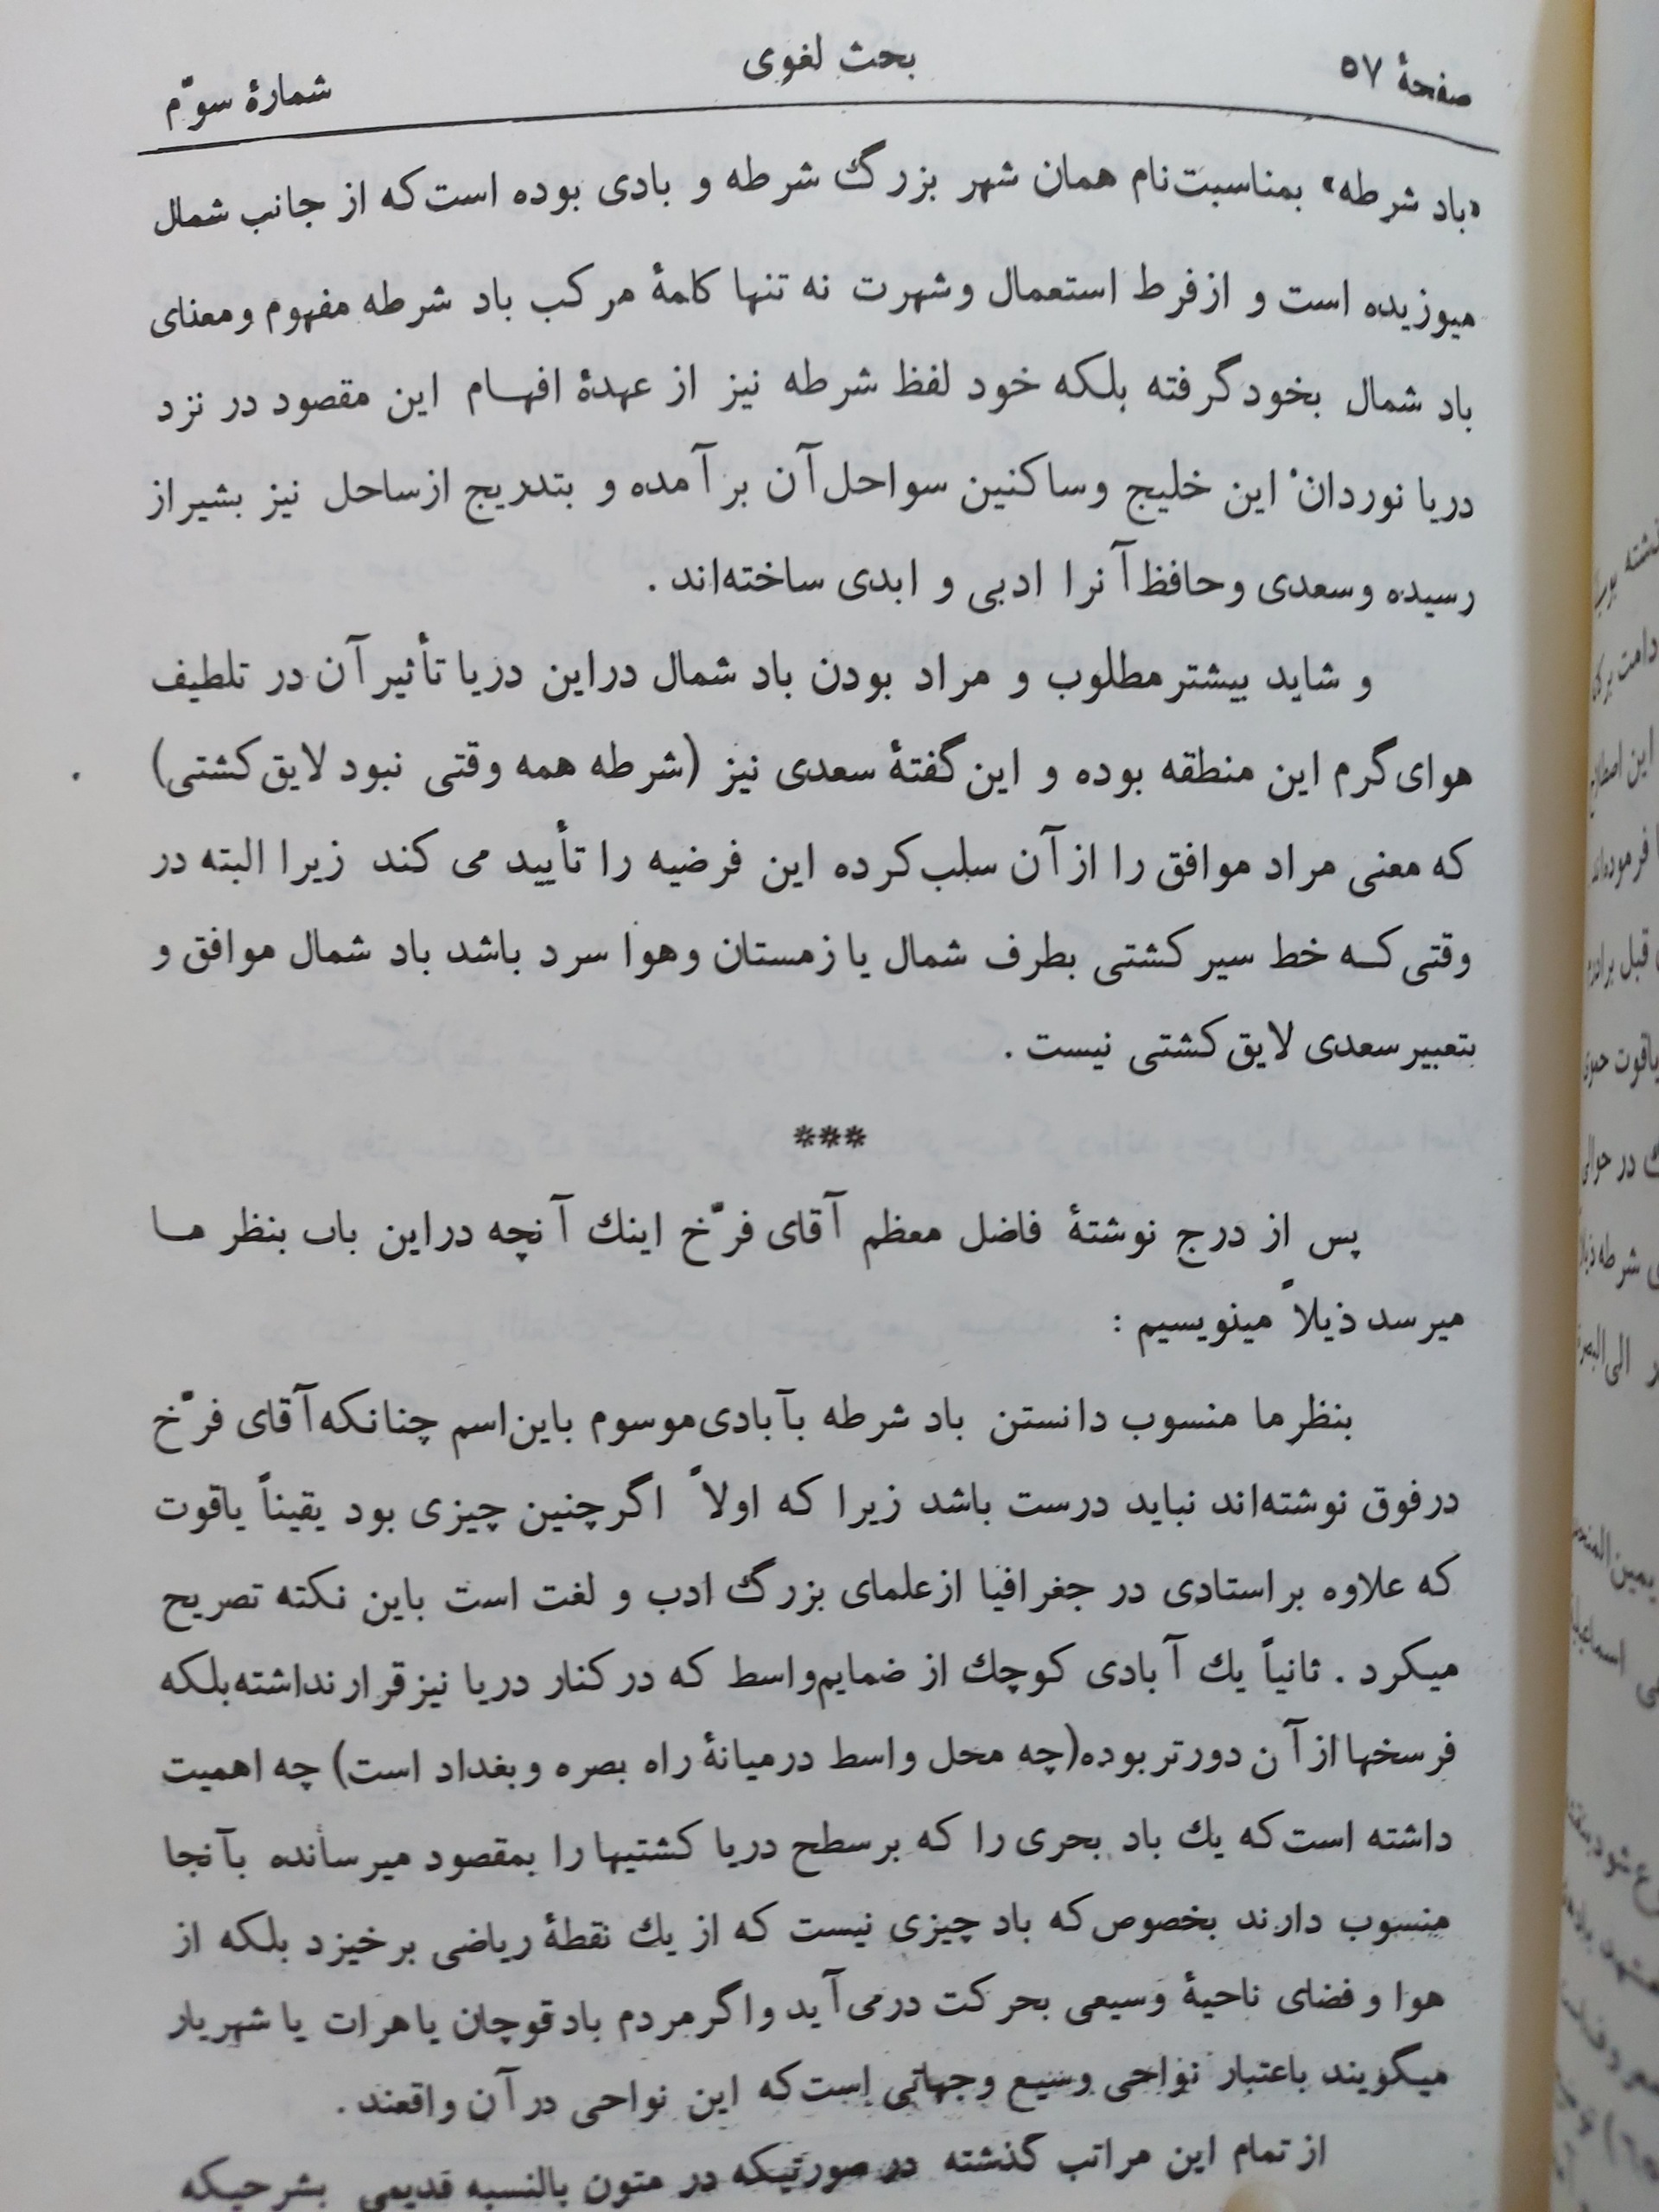 صفحهٔ ۵۷
بحث لغوی
شمارهٔ سوّم
«باد شرطه» بمناسبت نام همان شهر بزرگ شرطه و بادی بوده است که از جانب شمال
میوزیده است و از فرط استعمال و شهرت نه تنها کلمهٔ مرکب باد شرطه مفهوم و معنای
باد شمال بخود گرفته بلکه خود لفظ شرطه نیز از عهدهٔ افهام این مقصود در نزد
دریا نوردان این خلیج و ساکنین سواحل آن بر آمده و بتدریج از ساحل نیز بشیراز
رسیده و سعدی و حافظ آنرا ادبی و ابدی ساخته‌اند .
و شاید بیشتر مطلوب و مراد بودن باد شمال در این دریا تأثیر آن در تلطیف
هوای گرم این منطقه بوده و این گفتهٔ سعدی نیز (شرطه همه وقتی نبود لایق کشتی)
که معنی مراد موافق را از آن سلب کرده این فرضیه را تأیید می کند زیرا البته در
وقتی که خط سیر کشتی بطرف شمال یا زمستان و هوا سرد باشد باد شمال موافق و
بتعبیر سعدی لایق کشتی نیست .
***
پس از درج نوشتهٔ فاضل معظم آقای فرّخ اینك آنچه در این باب بنظر ما
میرسد ذیلاً مینویسیم :
بنظر ما منسوب دانستن باد شرطه بآبادی موسوم باین اسم چنانکه آقای فرّخ
در فوق نوشته‌اند نباید درست باشد زیرا که اولاً اگر چنین چیزی بود یقیناً یاقوت
که علاوه بر استادی در جغرافیا از علمای بزرگ ادب و لغت است باین نکته تصریح
میکرد . ثانیاً یك آبادی کوچك از ضمایم واسط که در کنار دریا نیز قرار نداشته بلکه
فرسخها از آن دورتر بوده (چه محل واسط در میانهٔ راه بصره و بغداد است) چه اهمیت
داشته است که یك باد بحری را که بر سطح دریا کشتیها را بمقصود میرسانده بآنجا
منسوب دارند بخصوص که باد چیزی نیست که از یك نقطهٔ ریاضی برخیزد بلکه از
هوا و فضای ناحیهٔ وسیعی بحرکت درمی‌آید و اگر مردم باد قوچان یا هرات یا شهریار
میگویند باعتبار نواحی وسیع و جهاتی است که این نواحی در آن واقعند .
از تمام این مراتب گذشته در صورتیکه در متون بالنسبه قدیمی بشرحیکه